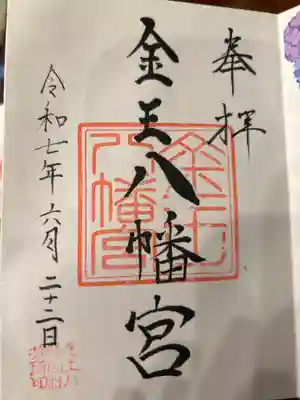 奉拝
金王八幡宮
令和七年六月二十二日
金王八幡宮